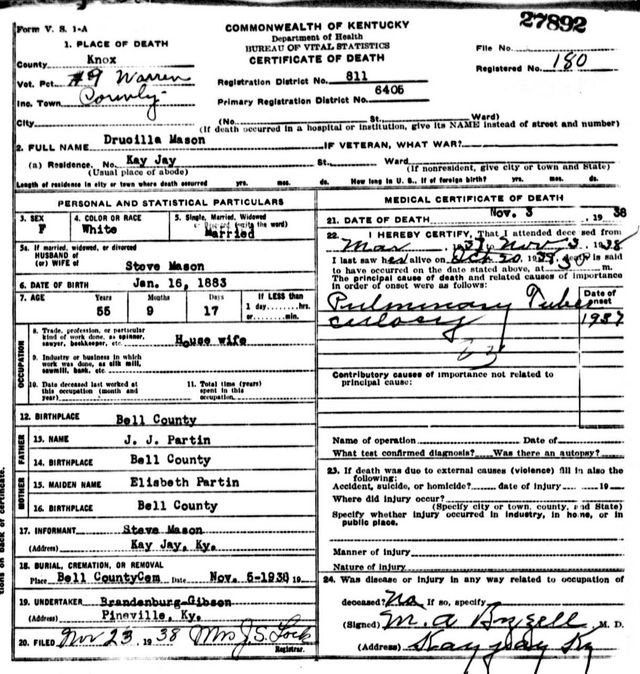 27892
Form V. S. 1-A
COMMONWEALTH OF KENTUCKY
Department of Health
BUREAU OF VITAL STATISTICS
CERTIFICATE OF DEATH
File No.
Registered No. 180
1. PLACE OF DEATH
County Knox
Vot. Pct. #9 Warren
Inc. Town County
City
Registration District No. 811
Primary Registration District No. 6405
(No. St. Ward)
(If death occurred in a hospital or institution, give its NAME instead of street and number)
2. FULL NAME Drucilla Mason IF VETERAN, WHAT WAR?
(a) Residence. No. Kay Jay St. Ward
(Usual place of abode) (If nonresident, give city or town and State)
Length of residence in city or town where death occurred yrs. mos. ds. How long in U. S., if of foreign birth? yrs. mos. ds.
PERSONAL AND STATISTICAL PARTICULARS
3. SEX F
4. COLOR OR RACE White
5. Single, Married, Widowed or Divorced (write the word) Married
5a. If married, widowed, or divorced
HUSBAND of
(or) WIFE of Steve Mason
6. DATE OF BIRTH Jan. 16, 1883
7. AGE Years 55 Months 9 Days 17 If LESS than 1 day hrs. or min.
OCCUPATION
8. Trade, profession, or particular
kind of work done, as spinner,
sawyer, bookkeeper, etc. House wife
9. Industry or business in which
work was done, as silk mill,
sawmill, bank, etc.
10. Date deceased last worked at
this occupation (month and
year)
11. Total time (years)
spent in this
occupation
12. BIRTHPLACE Bell County
FATHER
13. NAME J. J. Partin
14. BIRTHPLACE Bell County
MOTHER
15. MAIDEN NAME Elisbeth Partin
16. BIRTHPLACE Bell County
17. INFORMANT Steve Mason
(Address) Kay Jay, Ky.
18. BURIAL, CREMATION, OR REMOVAL
Place Bell CountyCem Date Nov. 5-1938 19
19. UNDERTAKER Brandenburg-Gibson
(Address) Pineville, Ky.
20. FILED Nov 23, 1938 Mrs J. S. Lock
Registrar.
MEDICAL CERTIFICATE OF DEATH
21. DATE OF DEATH Nov. 3 , 19 38
22. I HEREBY CERTIFY, That I attended deceased from
Mar 1937 to Nov 3, 1938
I last saw her alive on Oct 20, 1938, death is said
to have occurred on the date stated above, at m.
The principal cause of death and related causes of importance
in order of onset were as follows:
Date of onset
Pulmonary Tuber
culosey 1937
Contributory causes of importance not related to
principal cause:
Name of operation Date of
What test confirmed diagnosis? Was there an autopsy?
23. If death was due to external causes (violence) fill in also the
following:
Accident, suicide, or homicide? date of injury 19
Where did injury occur?
(Specify city or town, county, and State)
Specify whether injury occurred in industry, in home, or in
public place.
Manner of injury
Nature of injury
24. Was disease or injury in any way related to occupation of
deceased? No If so, specify
(Signed) M. D.
(Address) Kay jay Ky
tions on back of certificate.